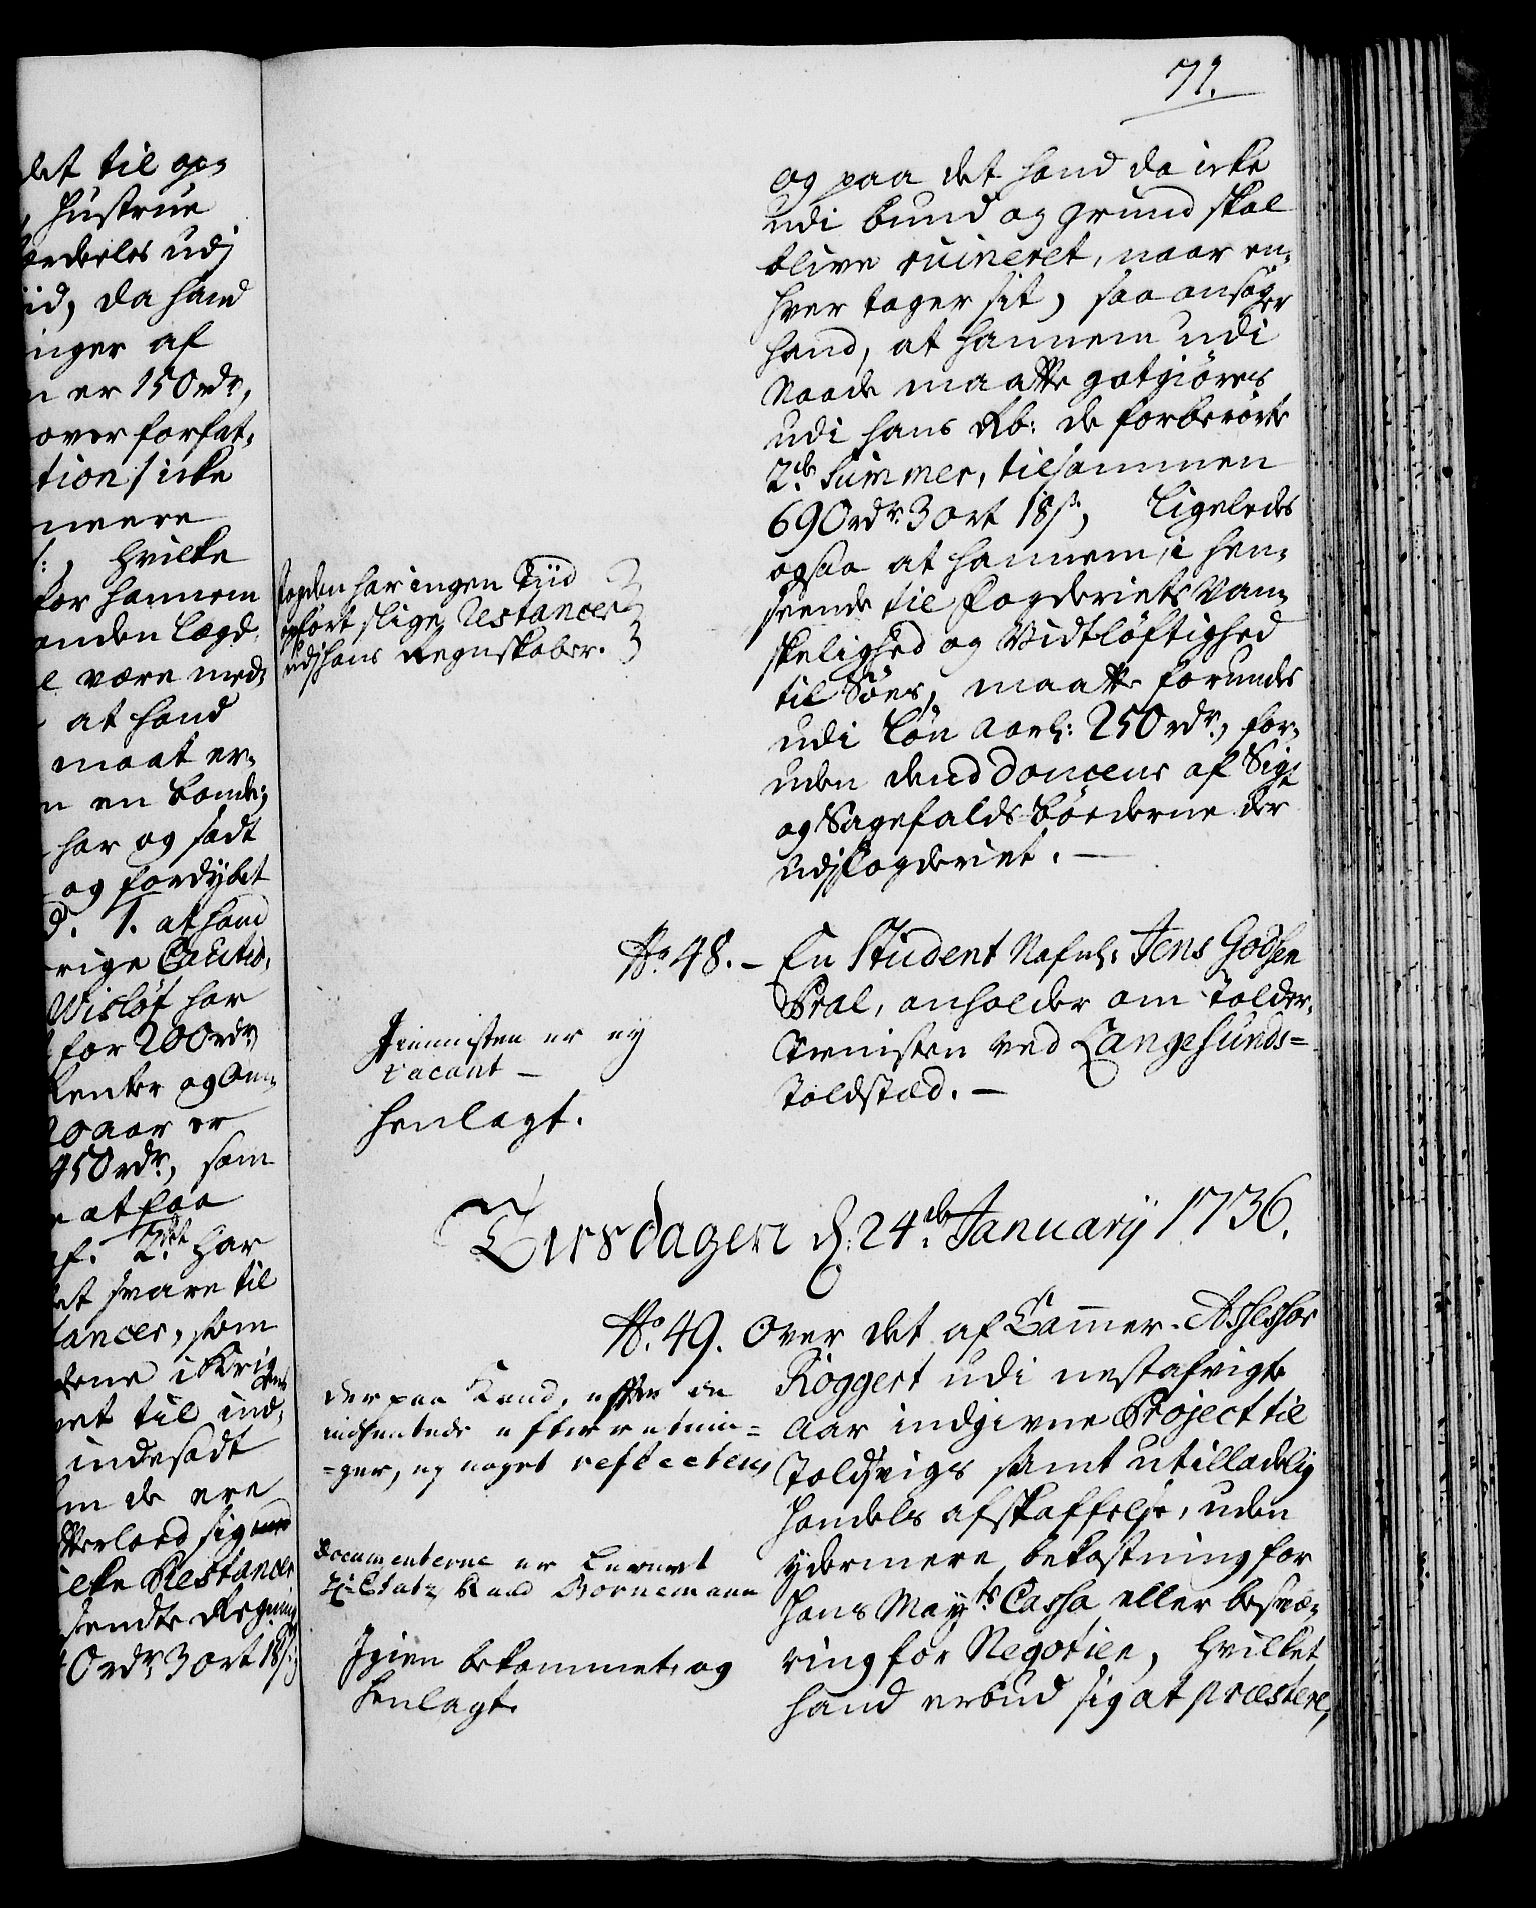 det til op,
Hustrue
ordeeles udj
iid, da hand
inger af
n er 150 rdr.,
over forfat,
tion /: icke
meere
:/, hvilke
for hannem
anden Lægd,
l være med,
at hand
maat er,
n en bonde,
har og sadt
og fordybet
d. 1. at hand
rige Cautio,
Wisløf har
for 200 rdr.
Renter og
20 aar er
450 rdr., som
e at paa
f. 2det har
et svare til
tancer, som
dene i Krigens
et til ind,
indesadt
m de ere
efterlod sig
elke Restancer
sendte Regning
0 rdr. 3 ort 18 s:
71.
og paa det hand da icke
udi bund og grund skal
blive ruineret, naar en,
hver tager sit, saa ansøger
hand, at hannem udi
Naade maatte gotgiøres
udi hans Rb: de forberørte
2de Summer, tilsammen
690 rdr. 3 ort 18 s., Ligeledes
ogsaa at hannem, i hen,
seende til Fogderiets Van,
skelighed og Vidtløftighed
til Søes, maatte forundes
udi Løn aarl: 250 rdr., for,
uden dend Douceur af Sigt
og Sagefalds Bøderne der
udj Fogderiet. —
Fogden har ingen Tiid
opført slige Restancer
udj hans Regnskaber.
No. 48. – En Student Nafnl: Jens Godsen
Pral, anholder om Tolder,
Tienisten ved Langesunds=
Toldsted. —
Tienisten er ey
vacant —
Henlagt.
Tirsdagen d: 24de January 1736.
No. 49. Over det af Cammer-Assessor
Röggert udi nestafvigte
Aar indgivne Project til
Toldsvigs samt utilladelig
Handels afskaffelse, uden
ydermere bekostning for
Hans Mayts Cassa eller besvæ,
ring for Negotien, hvilket
hand erbød sig at præstere,
der paa Kand, efter de
indhentede efterretnin=
=ger, ey noget reflecteres
Documenterne er Leveret
Hr Etatz Raad Bornemann
Igien bekommet, og
Henlagt.